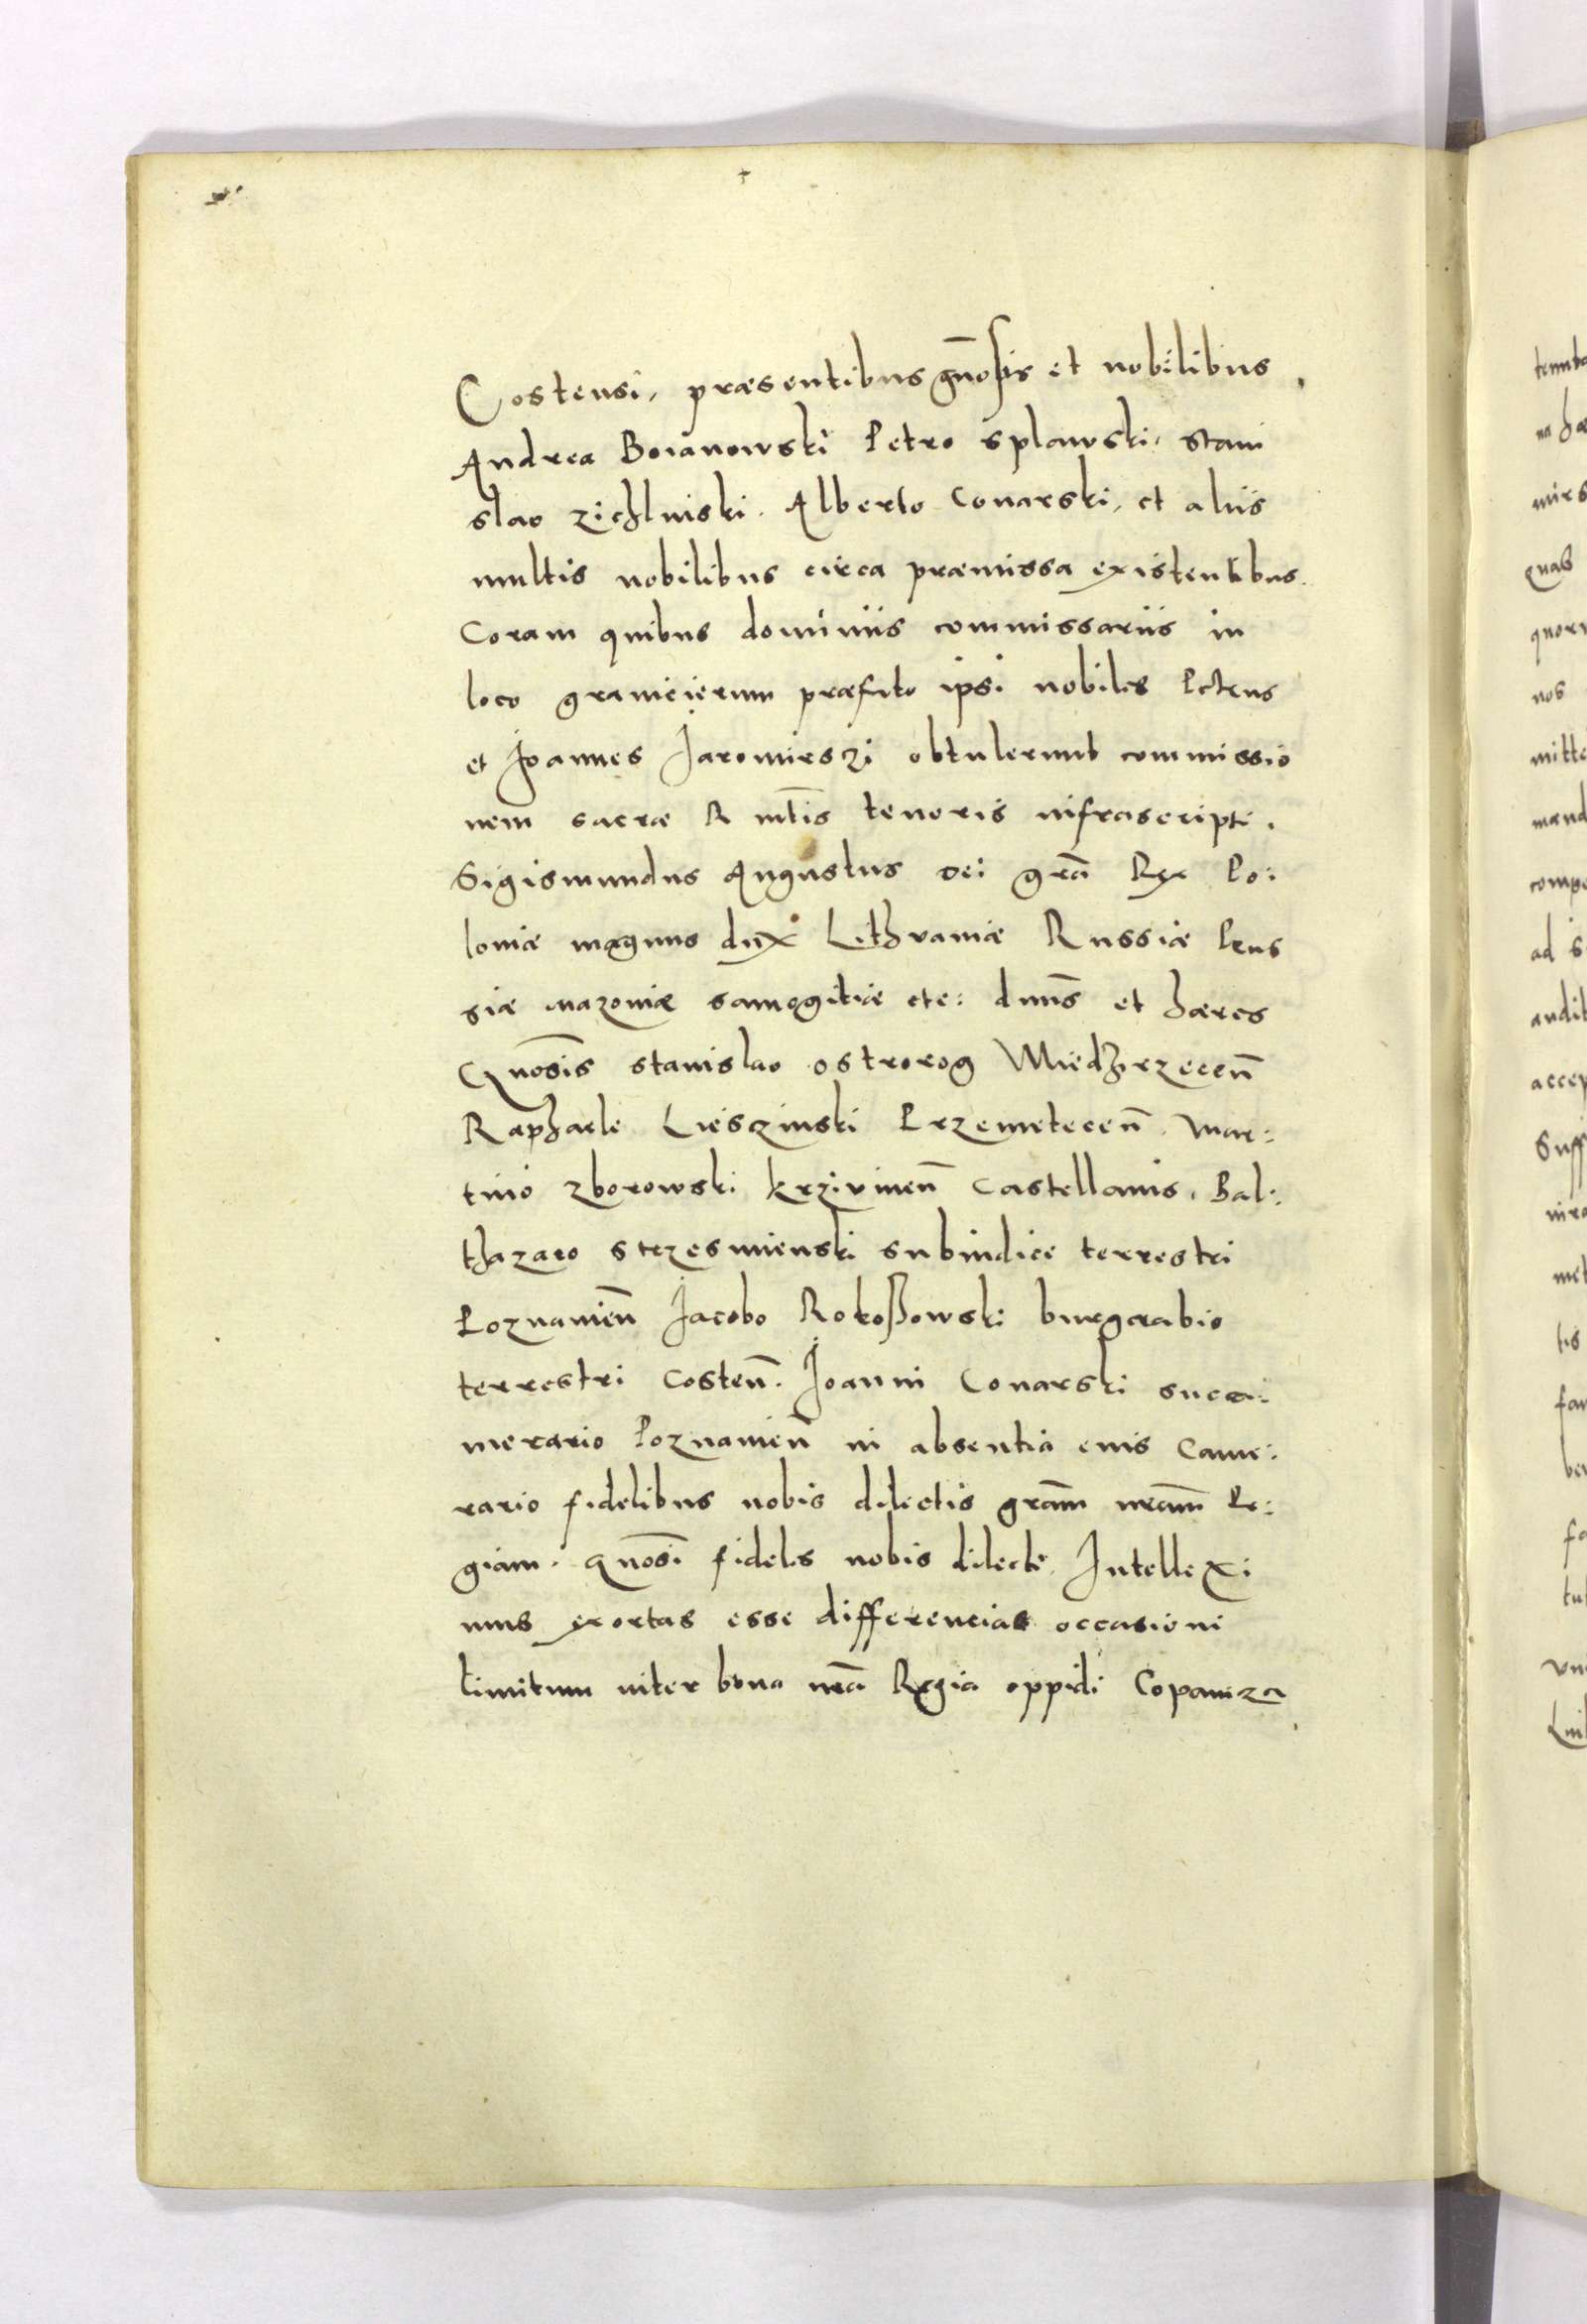 Costensi, præsentibus gn̄osis et nobilibus
Andrea Boianowski Petro Splawski, Stani
slao Zichlinski. Alberto Conarski, et aliis
multis nobilibus circa præmissa existentibus.
Coram quibus dominiis commissariis in
loco granicierum præfato ipsi nobiles Petrus
et Joannes Jaromirszi obtulerunt commissio
nem sacræ R mt̄is tenoris infrascripti.
Sigismundus Augustus Dei gr̄a Rex Po:
loniæ magnus dux Lithvaniæ Russiæ Prus
siæ Mazoniæ Samogitiæ etc: dn̄ns et hæres
Gn̄osis Stanislao Ostrorog Miedzrzecen̄
Raphaele Liesczinski Przemetecen̄. Mar:
tino Zborowski Krzivinen̄ Castellanis. Bal:
thazaro Strzesmienski subiudice terrestri
Poznanien̄ Jacobo Rokoßowski burgrabio
terrestri Costen̄. Joanni Conarski succa:
merario Poznanien̄ in absentia enis Came:
rario fidelibus nobis dilectis gr̄am nr̄am Re:
giam. Gn̄osi fideles nobis dilecti, Intellexi
mus exortas esse differencias occasioni
limitum inter bona nr̄a Regia oppidi Copaniza